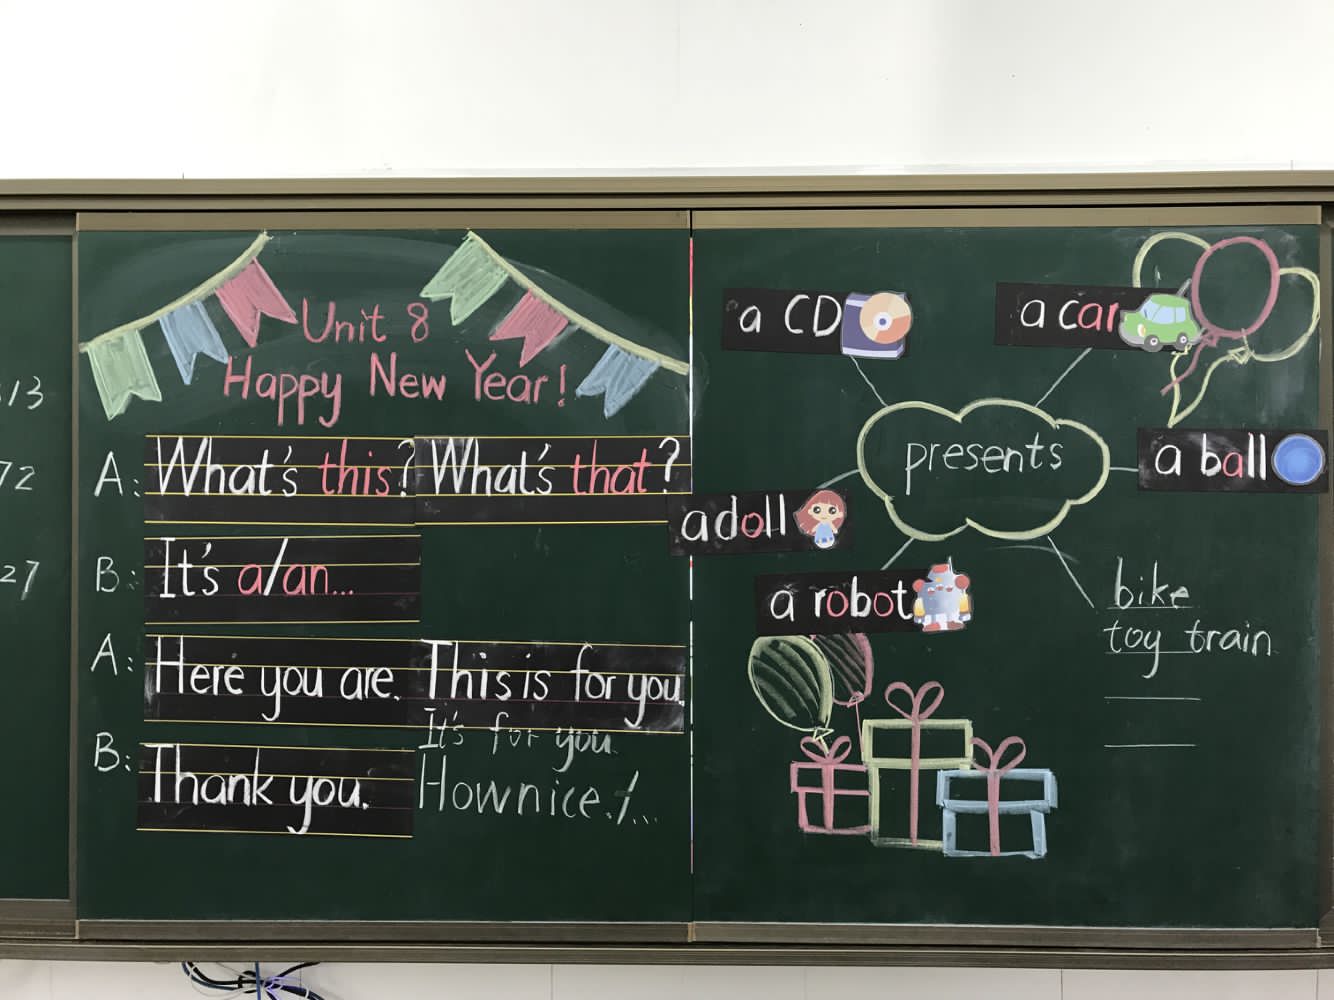 Unit 8
Happy New Year!
A: What's this? What's that?
B: It's a/an...
A: Here you are. This is for you.
It's for you.
B: Thank you.
How nice./...
a CD
a car
presents
a ball
a doll
a robot
bike
toy train
13
72
27